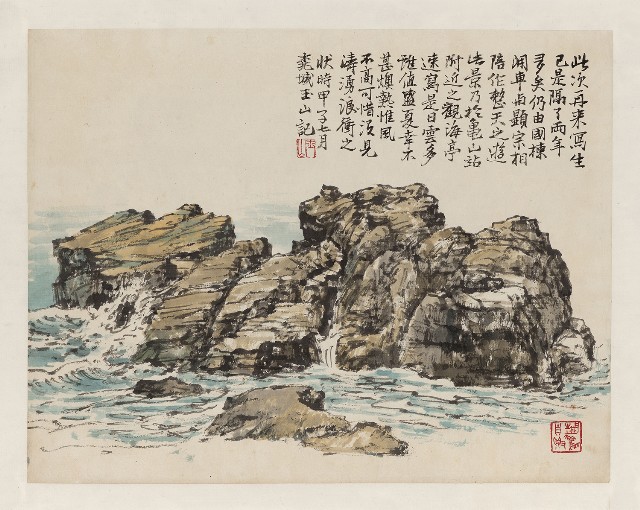 此次再來寫生
已是隔了兩年
多矣仍由國棟
開車與顯宗相
陪作整天之遊
此景乃於龜山站
附近之觀海亭
速寫是日雲多
雖值盛夏幸不
甚燠熱惟風
不高可惜沒見
濤湧浪衝之
狀時甲子七月
桃城玉山記